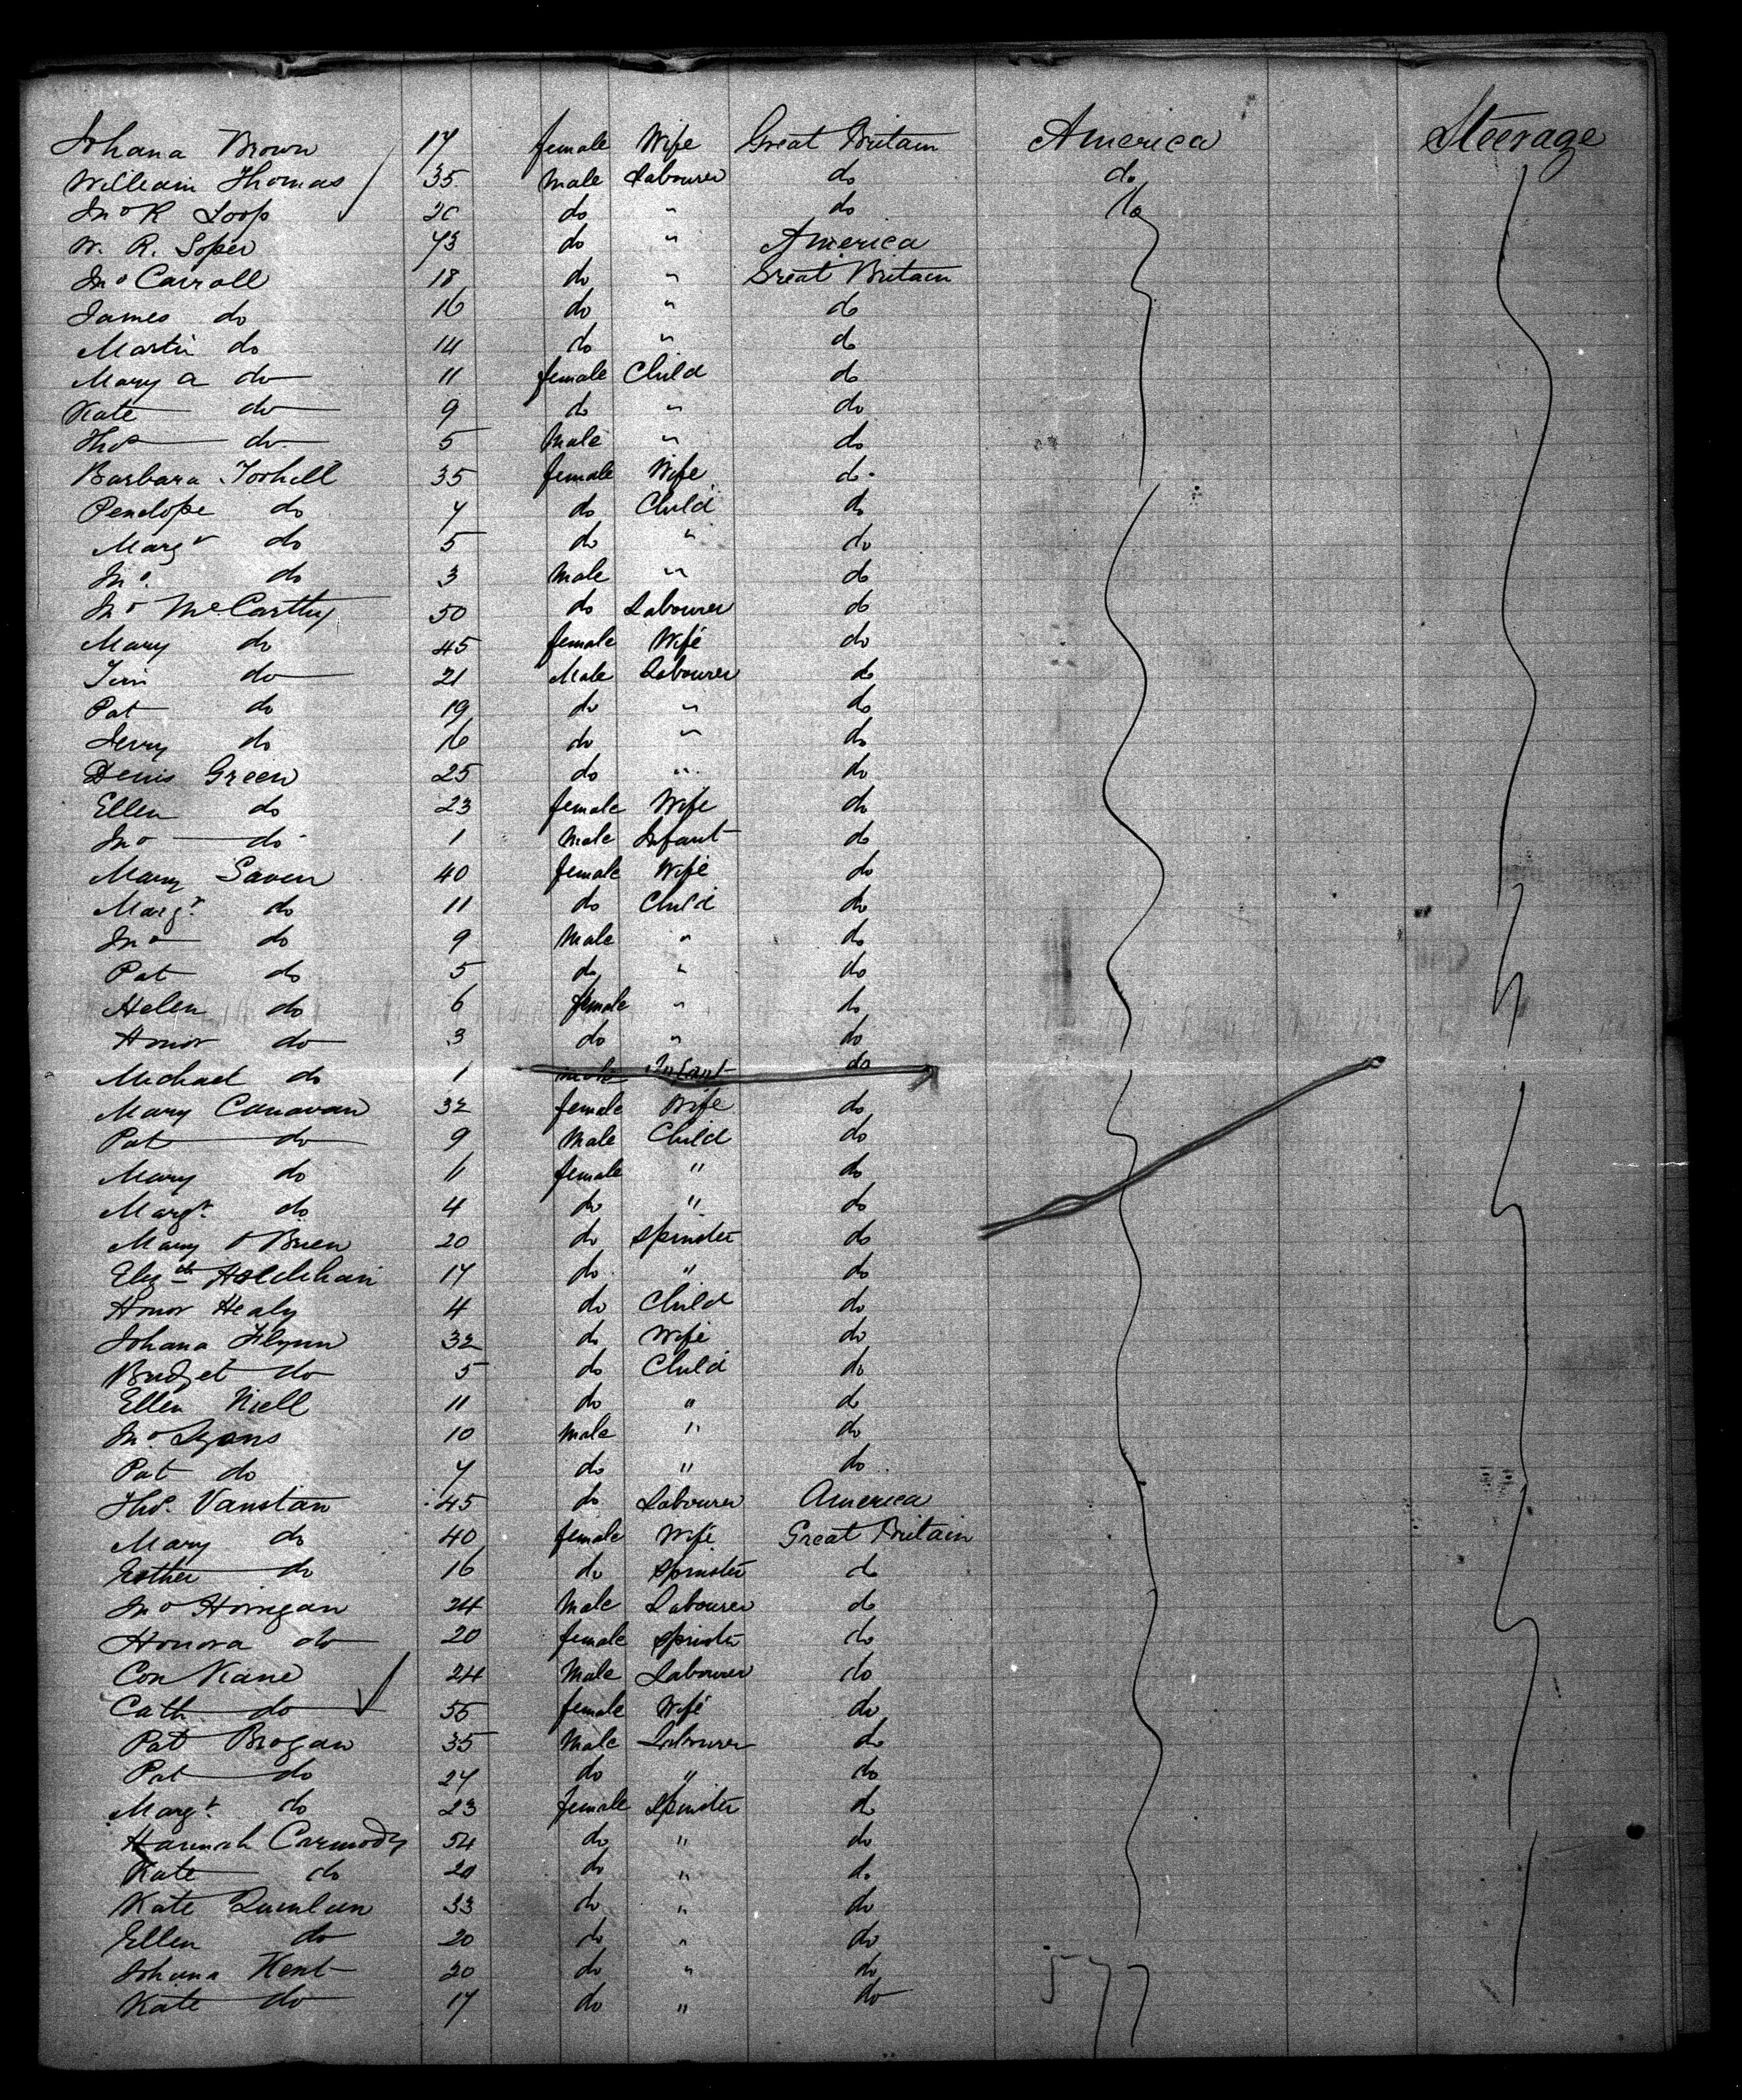 Johana Brown 17 female Wife Great Britain America Steerage
William Thomas 35 Male Labourer do do
Jno R Loop 20 do " do do
W. R. Soper 73 do " America
Jno Carroll 18 do " Great Britain
James do 16 do " do
Martin do 14 do " do
Mary A do 11 female Child do
Kate do 9 do " do
Thos do 5 Male " do
Barbara Toohill 35 female Wife do
Penelope do 7 do Child do
Margt do 5 do " do
Jno. do 3 Male " do
Jno McCarthy 50 do Labourer do
Mary do 45 female Wife do
Tim do 21 Male Labourer do
Pat do 19 do " do
Jerry do 16 do " do
Denis Green 25 do " do
Ellen do 23 female Wife do
Jno do 1 Male Infant do
Mary Saven 40 female Wife do
Margt. do 11 do Child do
Jno do 9 Male " do
Pat do 5 do " do
Helen do 6 female " do
Honor do 3 do " do
Michael do 1 male Infant do
Mary Canavan 32 female Wife do
Pat do 9 Male Child do
Mary do 11 female " do
Margt. do 4 do " do
Mary O Brien 20 do Spinster do
Elizth 17 do " do
Honor Healy 4 do Child do
Johana Flynn 32 do Wife do
Bridget do 5 do Child do
Ellen Niell 11 do " do
Jno. Lyons 10 Male " do
Pat do 7 do " do
Thos. Vanstan 45 do Labourer America
Mary do 40 female Wife Great Britain
Esther do 16 do Spinster do
Jno Horrigan 24 Male Labourer do
Honora do 20 female Spinster do
Con Kane 24 Male Labourer do
Cath do 55 female Wife do
Pat Brogan 35 Male Labourer do
Pat do 27 do " do
Margt. do 23 female Spinster do
Hannah Carmody 54 do " do
Kate do 20 do " do
Kate Quinlan 33 do " do
Ellen do 20 do " do
Johana Kent 20 do " do
Kate do 17 do " do
577